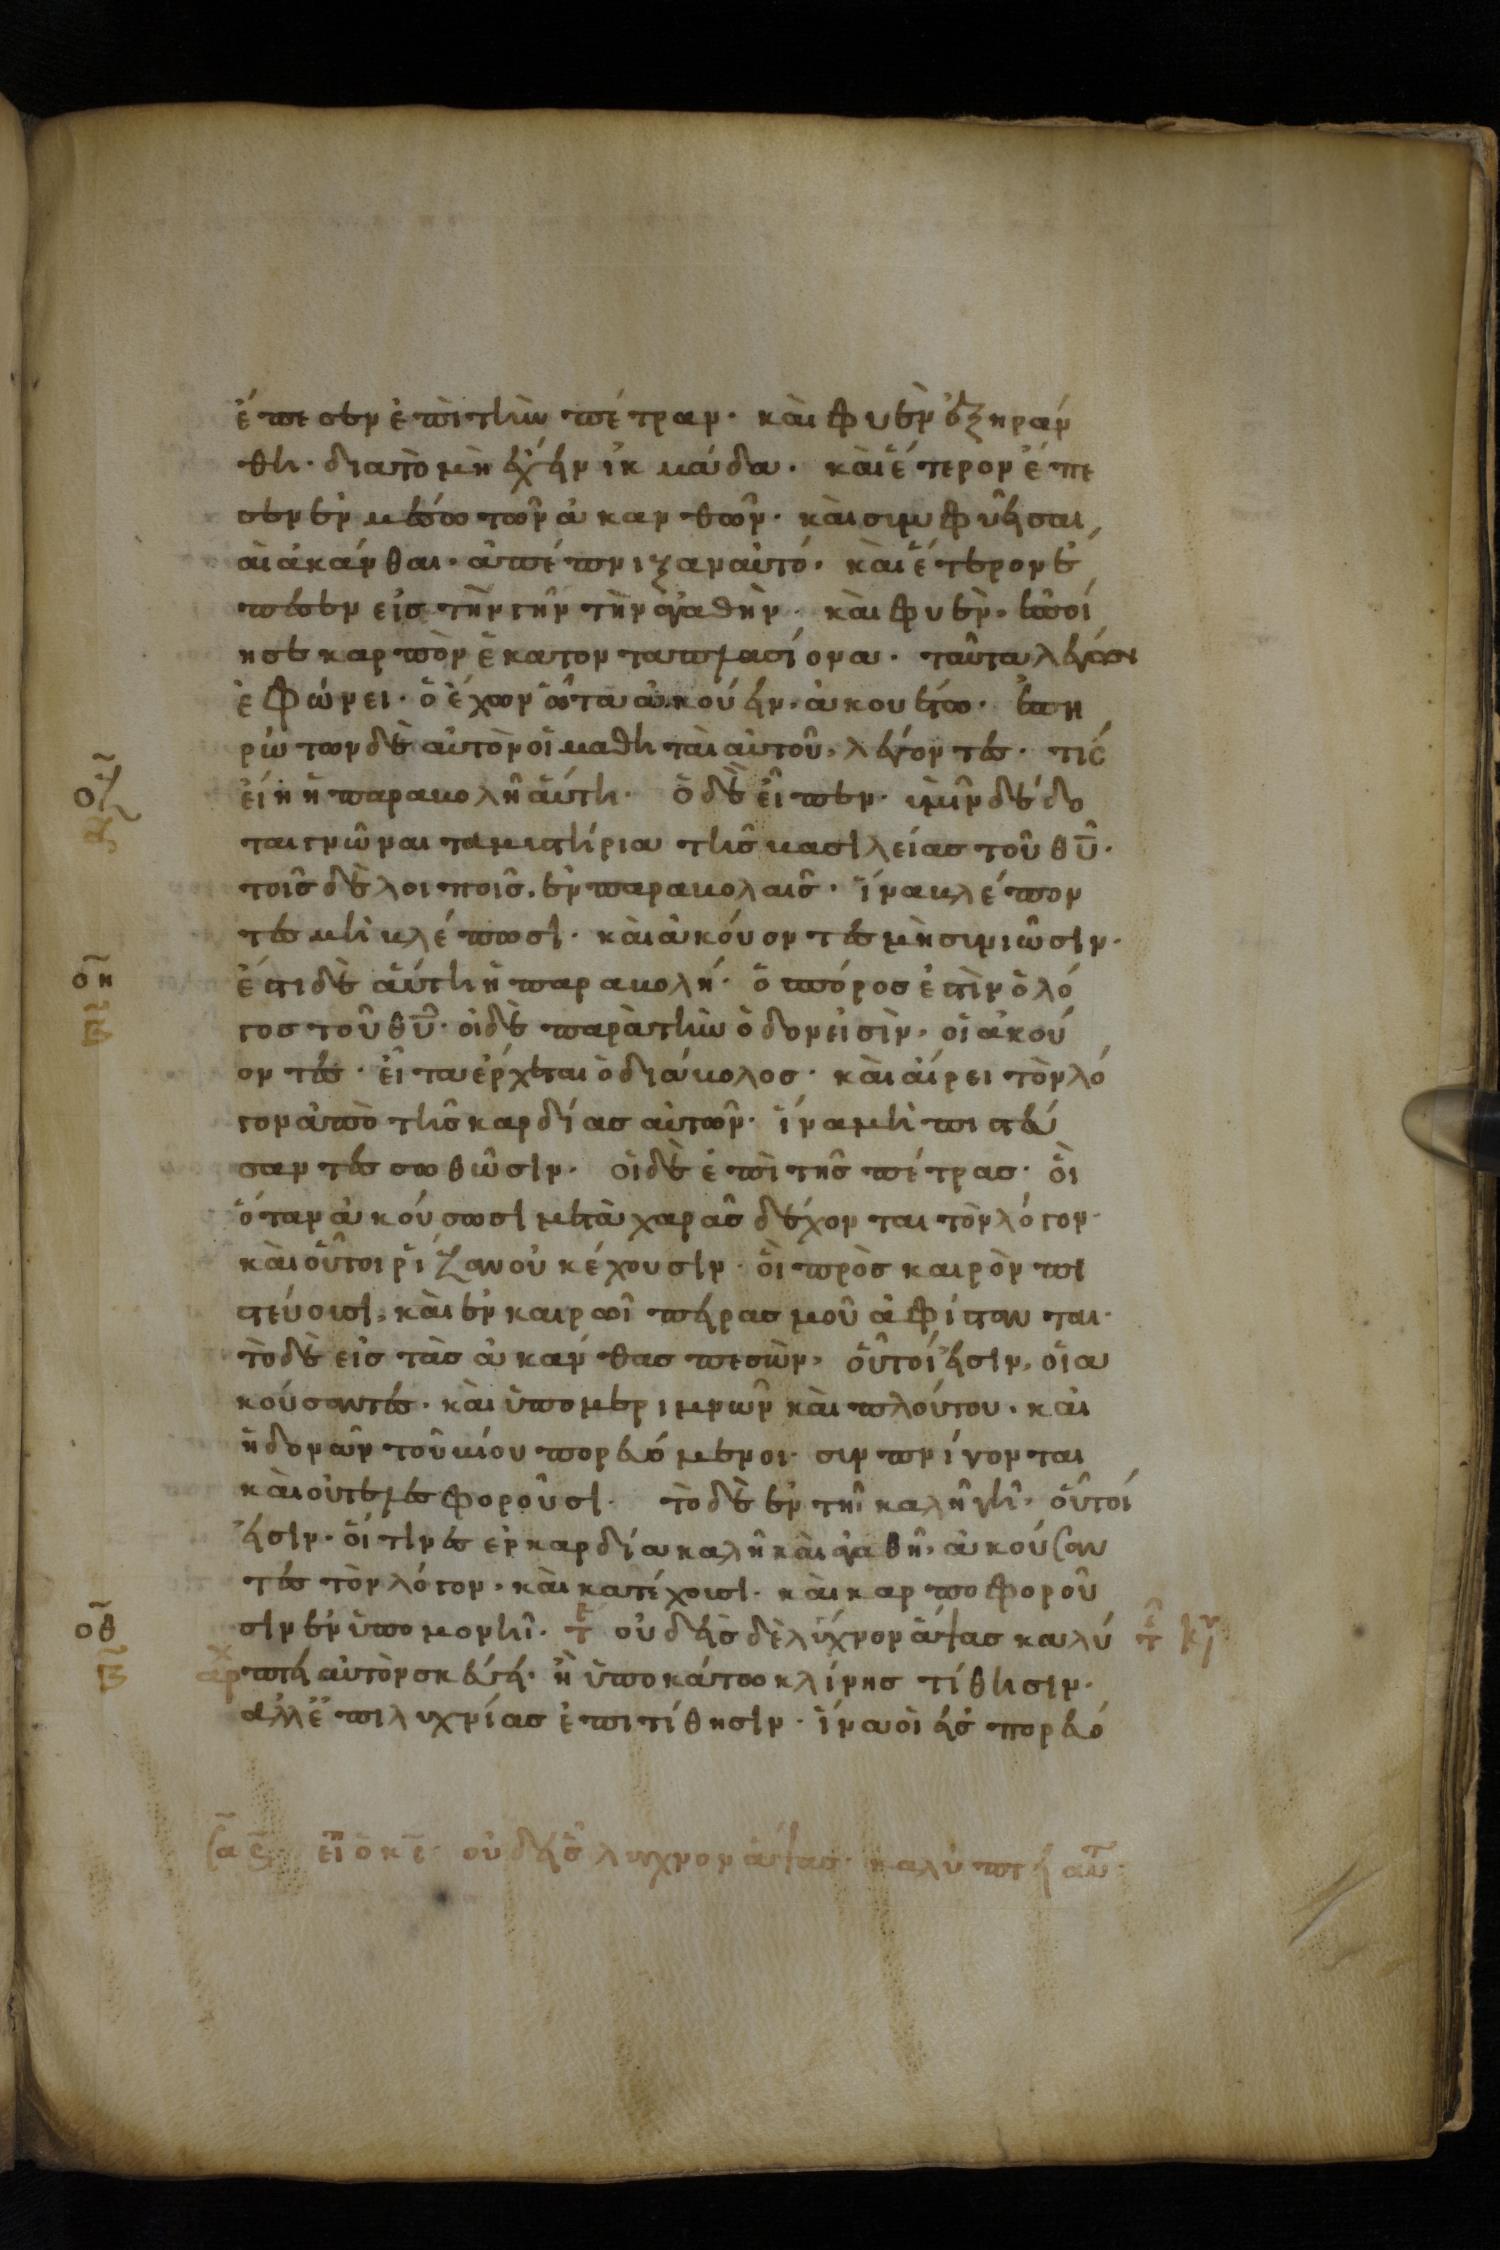 ἔπεσεν ἐπὶ τὴν πέτραν· καὶ φυὲν ἐξηράν
θη· διὰ τὸ μὴ ἔχειν ἰκμάδα· καὶ ἕτερον ἔπε
σεν ἐν μέσω τῶν ἀκανθῶν· καὶ συμφυεῖσαι
αἱ ἄκανθαι· ἀπέπνιξαν αὐτό· καὶ ἕτερον ἔ
πεσεν εἰς τὴν γῆν τὴν ἀγαθὴν· καὶ φυὲν· ἐποί
ησε καρπὸν ἑκατονταπλασίονα· ταῦτα λέγων
ἐφώνει· ὁ ἔχων ὦτα ἀκούειν· ἀκουέτω· ἐπη
ρώτων δὲ αὐτὸν οἱ μαθηταὶ αὐτοῦ, λέγοντες· τίς
εἴη ἡ παραβολὴ αὕτη· ὁ δὲ εἶπεν· ὑμῖν δέδο
ται γνῶναι τὰ μυστήρια τῆς βασιλείας τοῦ θυ·
τοῖς δὲ λοιποῖς· ἐν παραβολαῖς· ἵνα βλέπον
τες μὴ βλέπωσι· καὶ ἀκούοντες μὴ συνιῶσιν·
ἔστι δὲ αὕτη ἡ παραβολή· ὁ σπόρος ἐστὶν ὁ λό
γος τοῦ θυ· οἱ δὲ παρὰ τὴν ὁδόν εἰσὶν· οἱ ἀκού
οντες· εἶτα ἔρχεται ὁ διάβολος· καὶ αἴρει τὸν λό
γον ἀπὸ τῆς καρδίας αὐτῶν· ἵνα μὴ πιστεύ
σαντες σωθῶσιν· οἱ δὲ ἐπὶ τῆς πέτρας· οἳ
ὅταν ἀκούσωσι μετὰ χαρᾶς δέχονται τὸν λόγον·
καὶ οὗτοι ῥίζαν οὐκ ἔχουσιν· οἳ πρὸς καιρὸν πι
στεύουσι, καὶ ἐν καιρῶ πειρασμοῦ ἀφίστανται·
τὸ δὲ εἰς τὰς ἀκάνθας πεσὼν· οὗτοί εἰσιν, οἱ ἀ
κούσαντες· καὶ ὑπὸ μεριμνῶν καὶ πλούτου· καὶ
ἡδονῶν τοῦ βίου πορευόμενοι· συμπνίγονται
καὶ οὐ τελεσφοροῦσι· τὸ δὲ ἐν τῆ καλῆ γῆ· οὗτοί
εἰσιν· οἵτινες ἐν καρδία καλῆ καὶ ἀγαθῆ· ἀκούσαν
τες τὸν λόγον· καὶ κατέχουσι· καὶ καρποφοροῦ
σιν ἐν ὑπομονῆ· οὐδεὶς δὲ λύχνον ἅψας καλύ
πτει αὐτὸν σκεύει· ἢ ὑποκάτω κλίνης τίθησιν·
ἀλλ' ἐπὶ λυχνίας ἐπιτίθησιν· ἵνα οἱ εἰσπορευό
οζ
οη
οθ
αρχ
εἶπ ὁ κς· οὐδεὶς λύχνον ἅψας· καλύπτει αὐτ